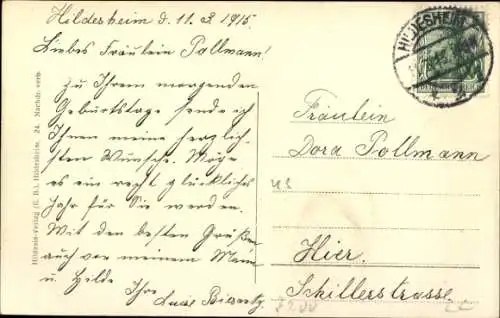 Hildesheim d. 11.3.1915.
Liebes Fräulein Pollmann!
Zu Ihrem morgenden
Geburtstage sende ich
Ihnen meine herzlich-
sten Wünsche. Möge
es ein recht glückliches
Jahr für Sie werden.
Mit den besten Grüßen
auch von meinem Mann
u. Hilde Ihre
Lucie
HILDESHEIM
Fräulein
Dora Pollmann
Hier.
Schillerstrasse
Hildesia-Verlag (E. B.), Hildesheim. 24. Nachdr. verb.